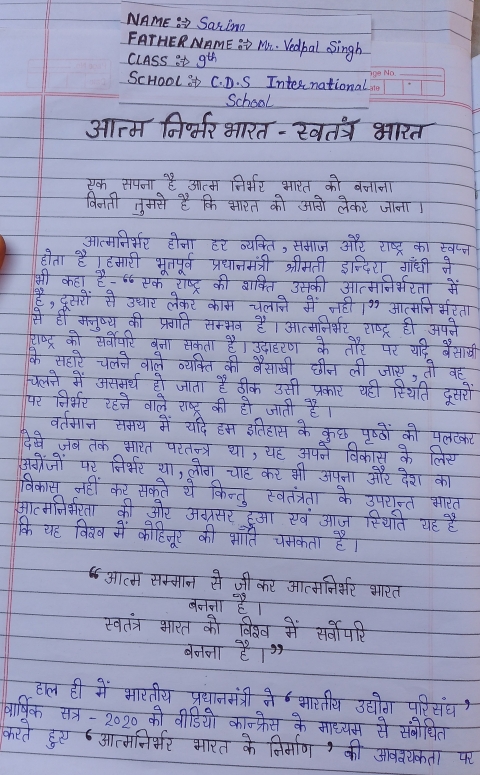 NAME :→ Sarino
FATHER NAME :→ Mr. Vedpal Singh
CLASS :→ 9th
SCHOOL :→ C.D.S International
School
ge No.
ate
आत्म निर्भर भारत - स्वतंत्र भारत
एक सपना है आत्म निर्भर भारत को बनाना
विनती तुमसे है कि भारत को आगे लेकर जाना।
आत्मनिर्भर होना हर व्यक्ति, समाज और राष्ट्र का स्वप्न
होता है। हमारी भूतपूर्व प्रधानमंत्री श्रीमती इन्दिरा गाँधी ने
भी कहा है - “एक राष्ट्र की शक्ति उसकी आत्मनिर्भरता में
है, दूसरों से उधार लेकर काम चलाने में नहीं।” आत्मनिर्भरता
से ही मनुष्य की प्रगति सम्भव है। आत्मनिर्भर राष्ट्र ही अपने
राष्ट्र को सर्वोपरि बना सकता है। उदाहरण के तौर पर यदि बैसाखी
के सहारे चलने वाले व्यक्ति की बैसाखी छीन ली जाए, तो वह
चलने में असमर्थ हो जाता है ठीक उसी प्रकार यही स्थिति दूसरों
पर निर्भर रहने वाले राष्ट्र की हो जाती है।
वर्तमान समय में यदि हम इतिहास के कुछ पृष्ठों को पलटकर
देखे जब तक भारत परतन्त्र था, यह अपने विकास के लिए
अंग्रेजों पर निर्भर था, लोग चाह कर भी अपना और देश का
विकास नहीं कर सकते थे किन्तु स्वतंत्रता के उपरान्त भारत
आत्मनिर्भरता की ओर अग्रसर हुआ एवं आज स्थिति यह है
कि यह विश्व में कोहिनूर की भाँति चमकता है।
“आत्म सम्मान से जी कर आत्मनिर्भर भारत
बनना है।
स्वतंत्र भारत को विश्व में सर्वोपरि
बनना है।”
हाल ही में भारतीय प्रधानमंत्री ने ‘भारतीय उद्योग परिसंघ’
वार्षिक सत्र - 2020 को वीडियो कान्फ्रेंस के माध्यम से संबोधित
करते हुए ‘आत्मनिर्भर भारत के निर्माण’ की आवश्यकता पर